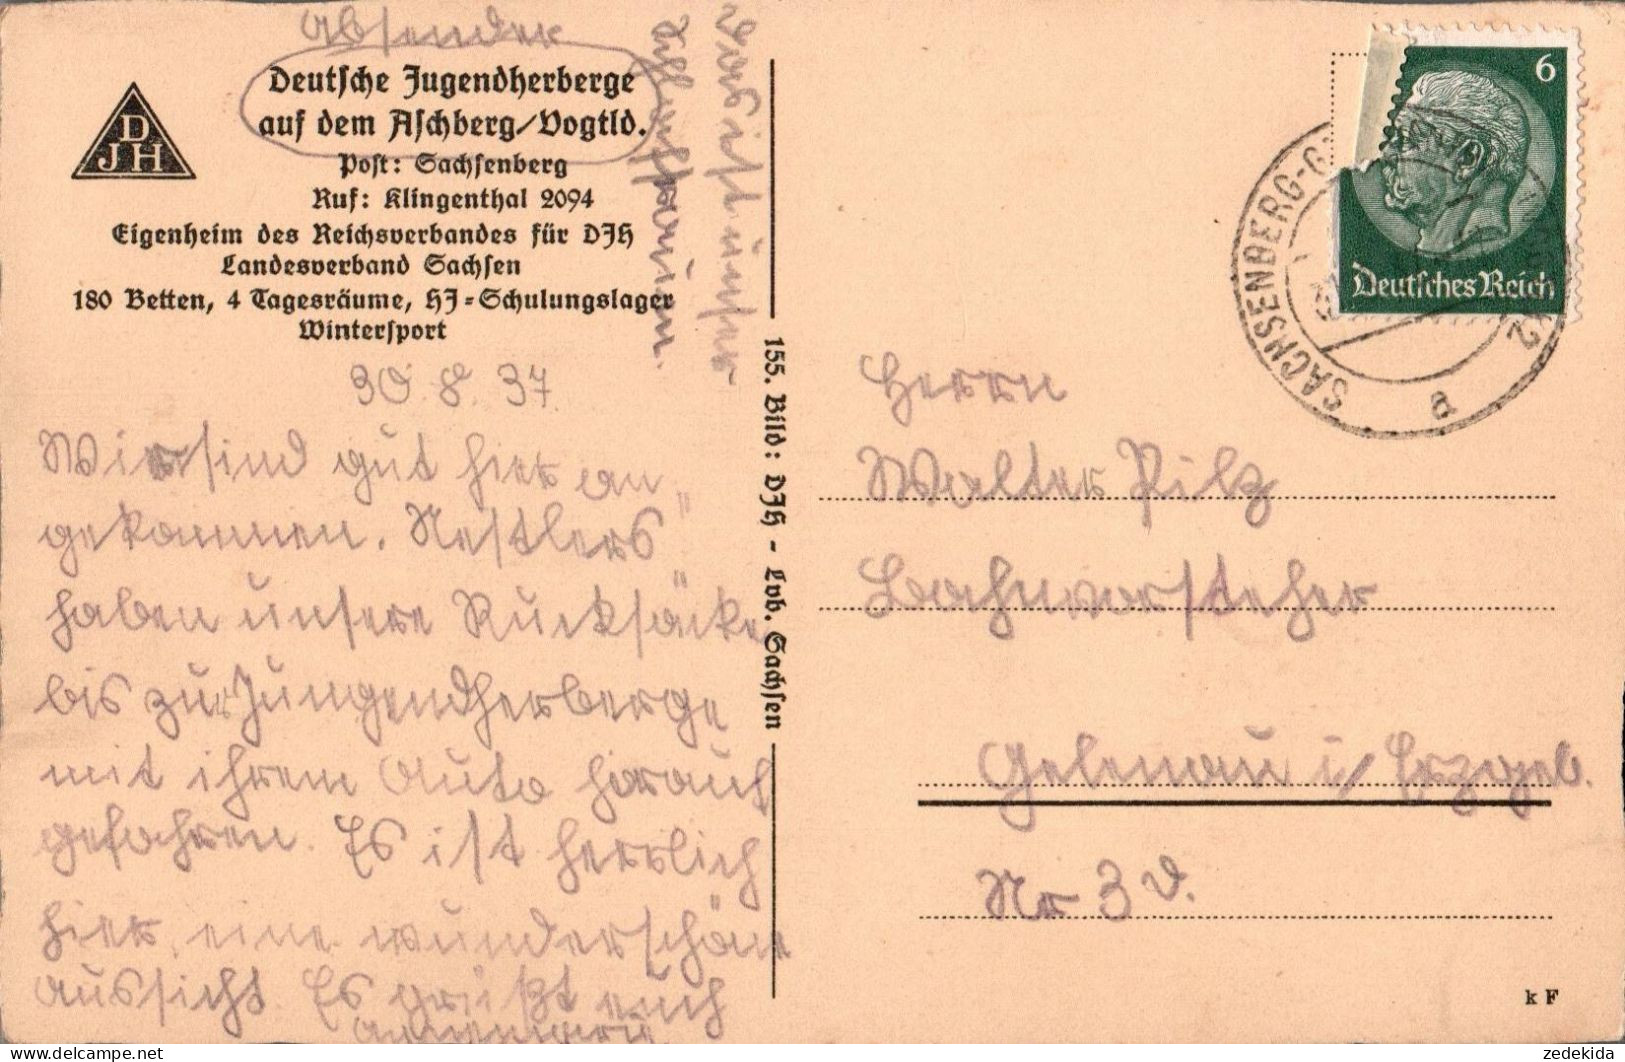 Absender
Deutsche Jugendherberge
auf dem Aschberg/Vogtld.
Post: Sachsenberg
Ruf: Klingenthal 2094
Eigenheim des Reichsverbandes für DJH
Landesverband Sachsen
180 Betten, 4 Tagesräume, HJ=Schulungslager
Wintersport
DJH
das ist unser
Schlafraum.
30.8.37.
Wir sind gut hier an
gekommen. „Nestlers"
haben unsere Rucksäcke
bis zur Jungendherberge
mit ihrem Auto herauf
gefahren. Es ist herrlich
hier, eine wunderschöne
Aussicht. Es grüßt euch
Annemarie
155. Bild: DJH - Lvb. Sachsen
6
Deutsches Reich
SACHSENBERG-G
a
Herrn
Walter Pilz
Bahnvorsteher
Gelenau i/ Erzgeb.
Nr 3 d.
k F
zedekida